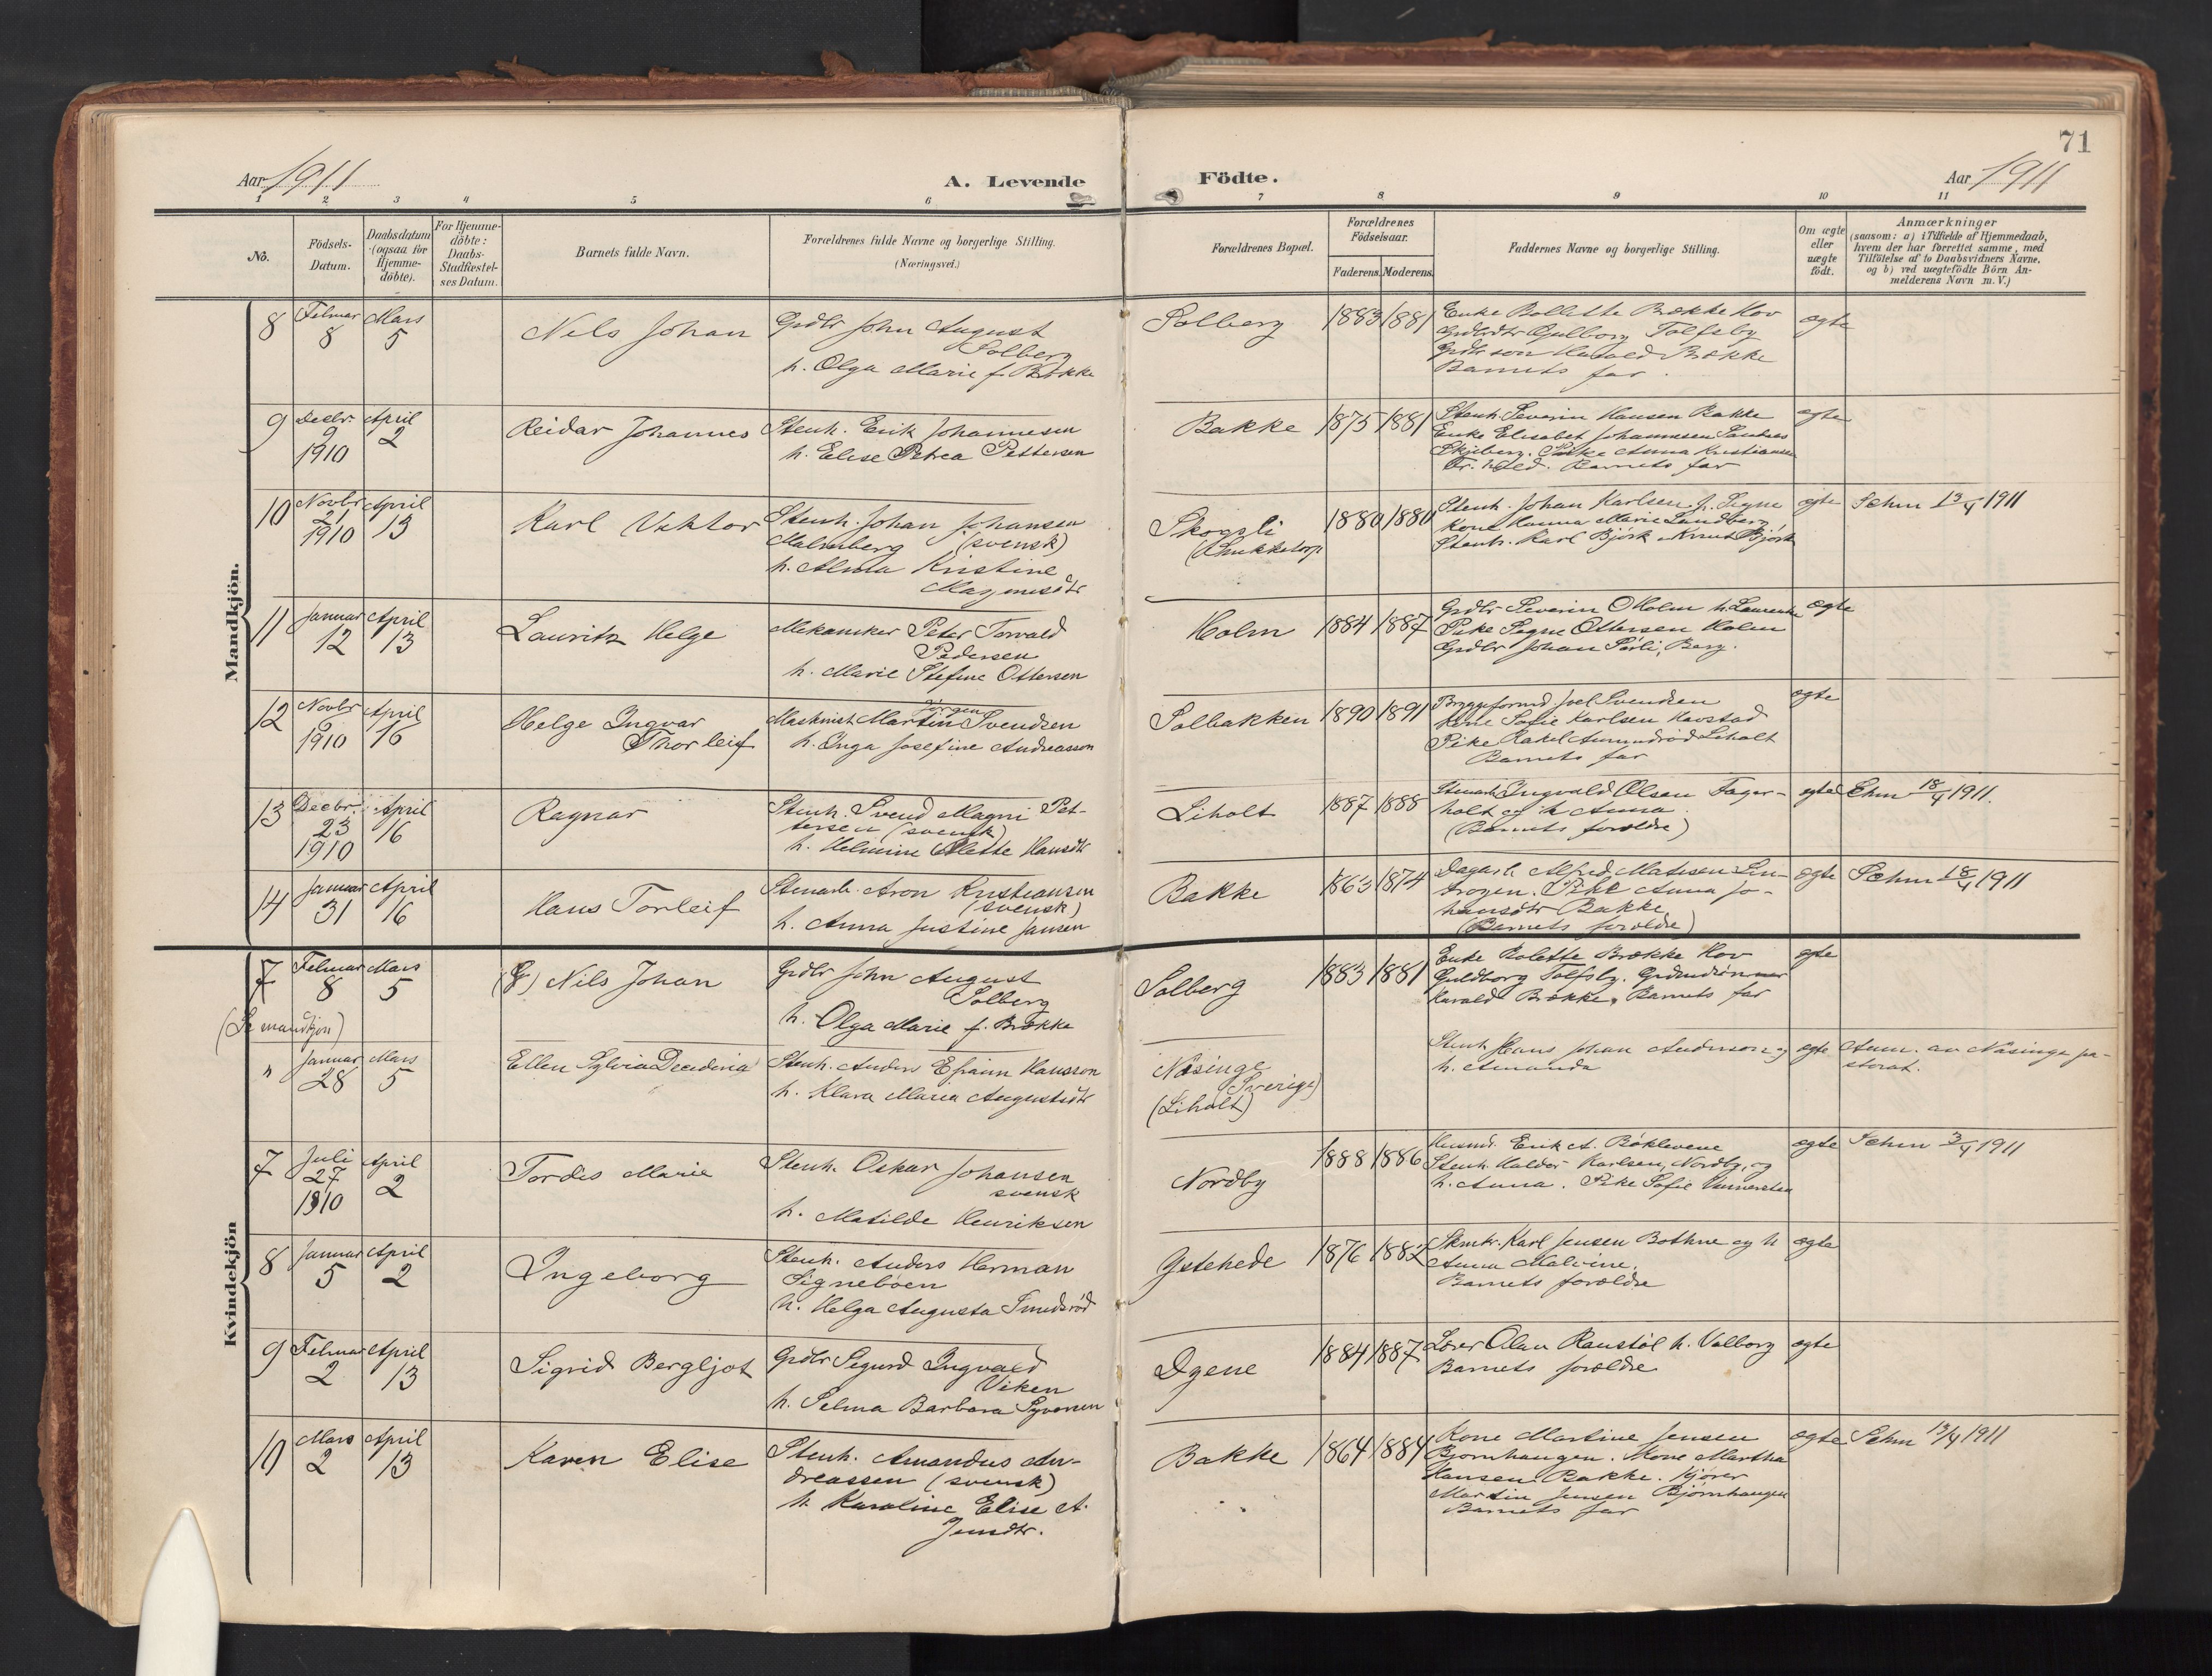 71
Aar 1911
A. Levende
Födte.
Aar 1911
1 2 3 4 5 6 7 8 9 10 11
No.
Födsels-
Datum.
Daabsdatum
(ogsaa for
Hjemme-
döbte).
For Hjemme-
döbte:
Daabs-
Stadfæstel-
ses Datum.
Barnets fulde Navn.
Forældrenes fulde Navne og borgerlige Stilling.
(Næringsvei.)
Forældrenes Bopæl.
Forældrenes
Födselsaar.
Faderens. Moderens.
Faddernes Navne og borgerlige Stilling.
Om ægte
eller
uægte
födt.
Anmærkninger
(saasom: a) i Tilfælde af Hjemmedaab,
hvem der har forrettet samme, med
Tilföielse af to Daabsvidners Navne,
og b) ved uægtefödte Börn An-
melderens Navn m. V.)
Mandkjön.
8
Februar
8
Mars
5
Nels Johan
Grdbr John August
Solberg
h. Olga Marie f. Brække
Solberg
1883 1881
Enke Bollette Brække Hov
Grdbrdtr Gulborg Tolfsby
Grdbr son Harald Brække
Barnets far.
ægte
9
Decbr.
9
1910
April
2
Reidar Johannes
Stenh. Erik Johannesen
h. Elise Petrea Pettersen
Bakke
1875 1881
Stenh. Severin Hansen Bakke
Enke Elisabet Johannesen
Skjeberg. Pike Anna Kristiansen
Fr.hald. Barnets far
ægte
10
Novbr
21
1910
April
13
Karl Viktor
Stenh. Johan Johansen
Malmberg (svensk)
h. Alma Kristine
Magnusdtr
Skogsli
1880 1880
Stenh. Johan Karlsen, p. Signe
Kone Hanna Marie Lundberg,
Stenh. Karl Björk Knut Björk
ægte
Sehm 13/4 1911
11
Januar
12
April
13
Lauritz Helge
Mekaniker Peter Torvald
Pedersen
h. Marie Stefine Ottersen
Holm
1884 1887
Grdbr Severin O Holm h. Laurentse
Pike Signe Ottersen Holm
Grdbr Johan Sörli, Berg.
ægte
12
Novbr
6
1910
April
16
Helge Ingvar
Thorleif
Jörgen
Maskinist Martin Svendsen
h. Inga Josefine Andreasson
Solbakken
1890 1891
Bryggeformd Joel Svendsen
Kone Sofie Karlsen Havstad
Pike Rakel Amundröd Liholt
Barnets far
ægte
13
Decbr.
23
1910
April
16
Ragnar
Stenh. Svend Magni Pet-
tersen (svensk)
h. Helmine Olette Hansdtr
Liholt
1887 1888
Stenarb Ingvald Olsen Fager-
holt og h Anna.
(Barnets forældre)
ægte
Ehm 18/4 1911.
14
Januar
31
April
16
Hans Torleif
Stenarb. Aron Kristiansen
(svensk)
h. Anna Justine Jansen
Bakke
1863 1874
Dagarb Alfred Matisen Lin-
trogen. Pike Anna Jo-
hansdtr Bakke
(Barnets forældre)
ægte
Sehm 18/4 1911
Kvindekjön
7
(Se mandkjön)
Februar
8
Mars
5
(8) Nils Johan
Grdbr John August
Solberg
h. Olga Marie f. Brække
Solberg
1883 1881
Enke Bolette Brække Hov
Guldborg Tolfsby.
Harald Brække, Barnets far
ægte
"
Januar
28
Mars
5
Ellen Sylvia Decideria
Stenh. Anders Efraim Hansson
h. Klara Maria Augustsdtr
Näsinge
(Sverige)
(Liholt)
Stenh Hans Johan Anderson og
h. Amanda
ægte
Anm. av Näsinge pa-
storat.
7
Juli
27
1910
April
2
Tordis Marie
Stenh. Oskar Johansen
svensk
h. Matilde Henriksen
Nordby
1888 1886
Husmd. Erik A. Böklevene
Stenh. Haldor Karlsen, Nordby, og
h. Anna. Pike Sofie
ægte
Sehm 3/4 1911
8
Januar
5
April
2
Ingeborg
Stenh. Anders Herman
Signebøen
h. Helga Augusta Smedsröd
Ystehede
1876 1882
Skmkr. Karl Jensen Bothne og h
Anna Malvine.
Barnets forældre
ægte
9
Februar
2
April
13
Sigrid Bergljot
Grdbr Sigurd Ingvald
Viken
h. Selma Barbara Syversen
Dyene
1884 1887
Lærer Olav Raustöl h. Valborg
Barnets forældre
ægte
10
Mars
2
April
13
Karen Elise
Stenh. Amandus An-
dreassen (svensk)
h. Karoline Elise A.
Jensdtr.
Bakke
1864 1884
Kone Martine Jensen
Bjornhaugen. Kone Martha
Hansen Bakke. Kjörer
Martin Jensen Bjørnhaugen
Barnets far
ægte
Sehm 13/4 1911